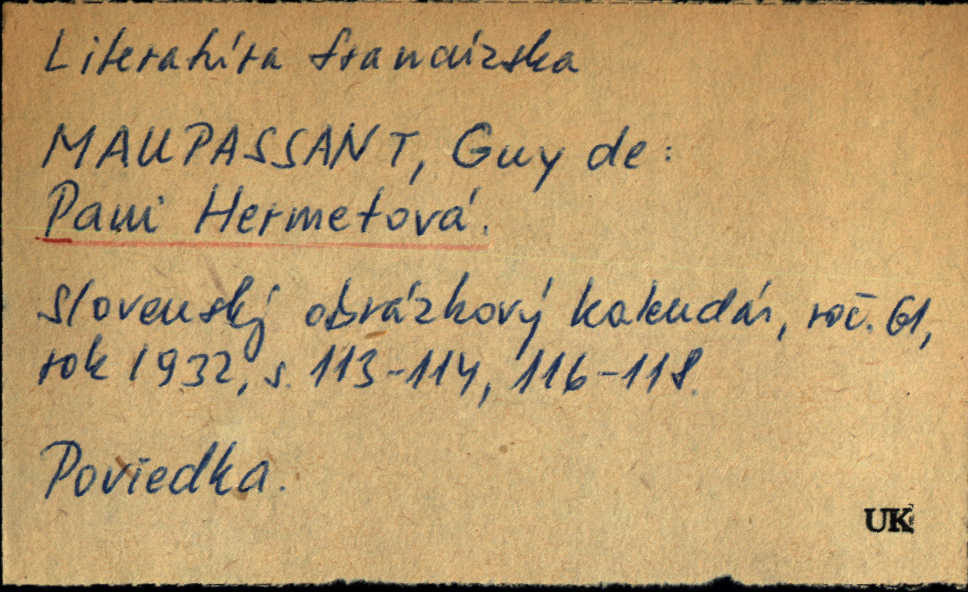 Literatúra francúzska
MAUPASSANT, Guy de:
Pani Hermetová.
Slovenský obrázkový kalendár, roč. 61,
rok 1932, s. 113-114, 116-118.
Poviedka.
UK